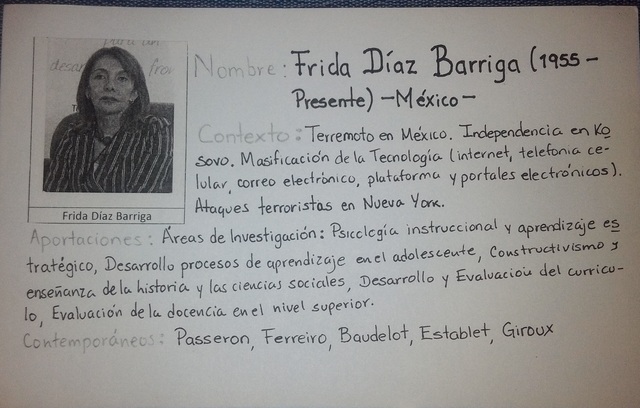 para un
desar
frex
Nombre: Frida Díaz Barriga (1955 -
Presente) - México -
Contexto: Terremoto en México. Independencia en Ko
sovo. Masificación de la Tecnología (internet, telefonía ce-
lular, correo electrónico, plataforma y portales electrónicos).
Ataques terroristas en Nueva York.
Frida Díaz Barriga
Aportaciones: Áreas de Investigación: Psicología instruccional y aprendizaje es
tratégico, Desarrollo procesos de aprendizaje en el adolescente, Constructivismo y
enseñanza de la historia y las ciencias sociales, Desarrollo y Evaluación del currícu-
lo, Evaluación de la docencia en el nivel superior.
Contemporáneos: Passeron, Ferreiro, Baudelot, Establet, Giroux